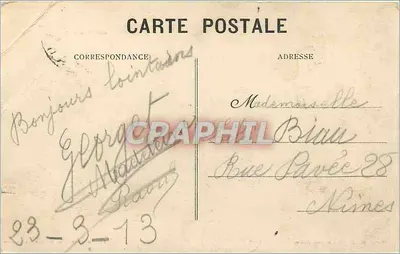 CARTE POSTALE
CORRESPONDANCE
ADRESSE
Bonjours lointains
Georget
23-3-13
Mademoiselle
Biau
Rue Pavée 28
Nimes
CPAPHIL